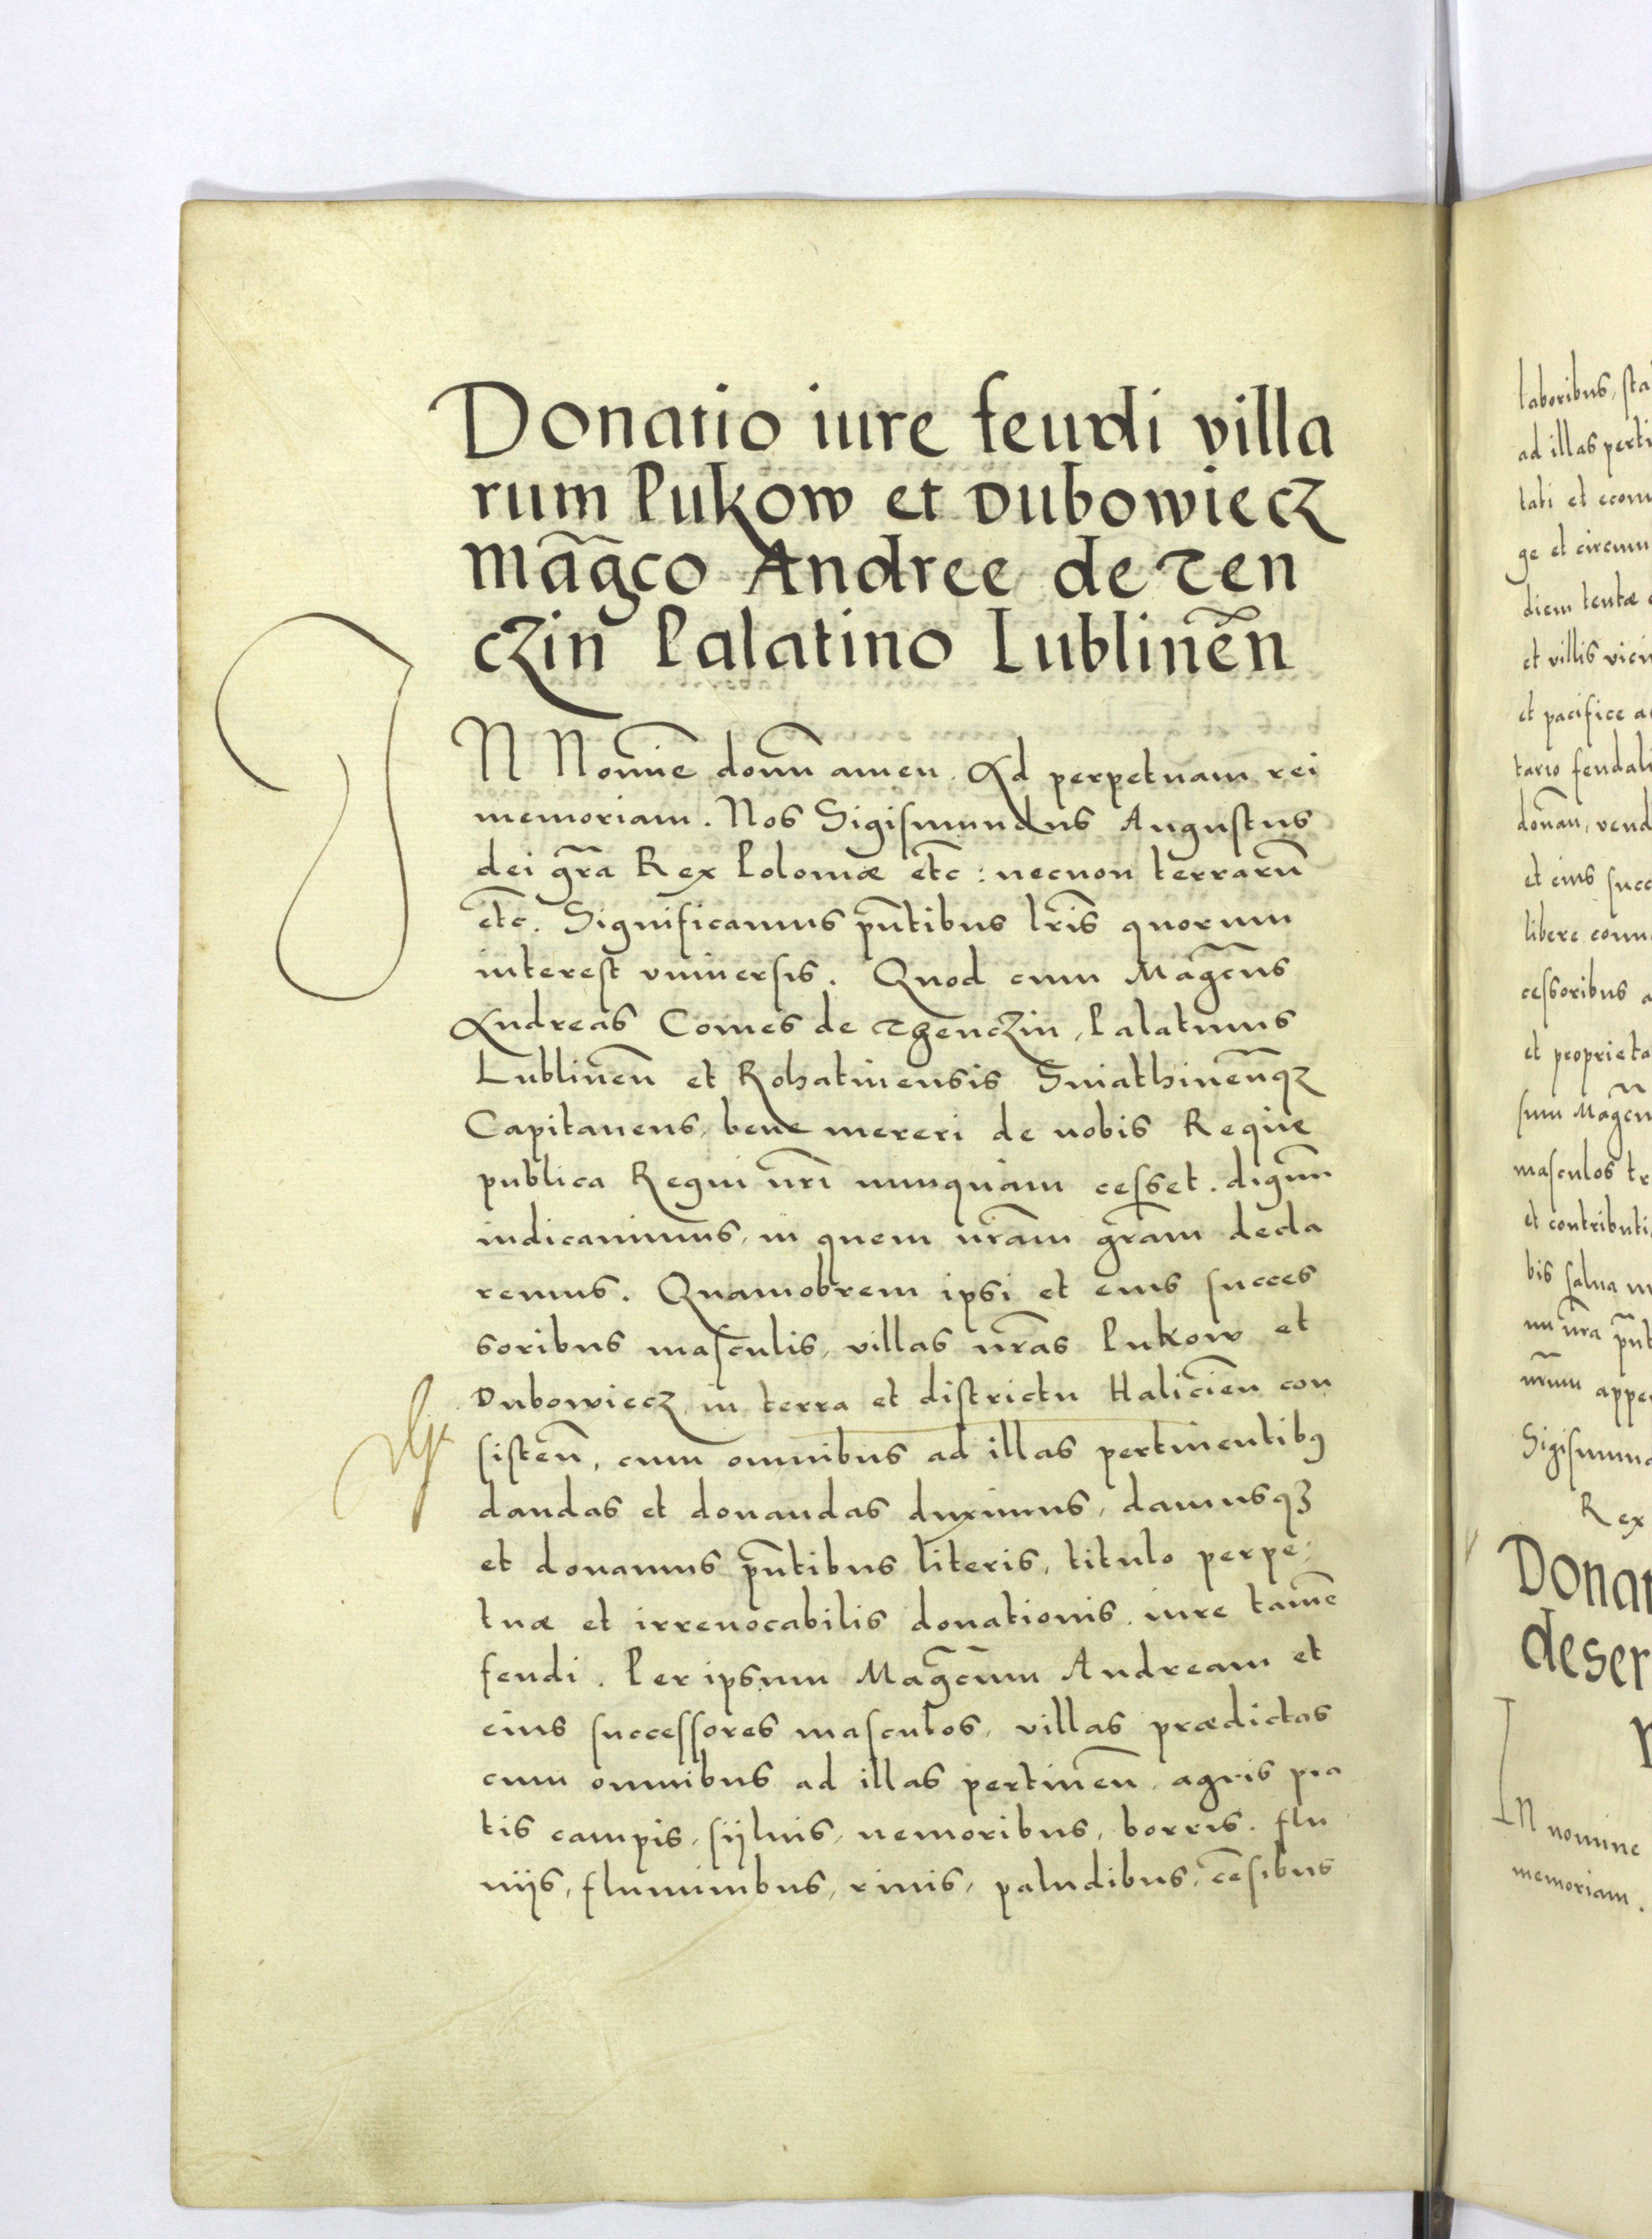 Donatio iure feudi villa
rum Pukow et Dubowiecz
mãgco Andree de Ten
czin Palatino Lublineñ
IN Noĩe domĩ amen. Ad perpetuam rei
memoriam. Nos Sigismundus Augustus
dei gr̃a Rex Poloniæ etc̃: necnon terrarũ
etc̃. Significamus pñtibus lr̃is quorum
interest vniuersis. Quod cum Mag̃cus
Andreas Comes de Thenczin, Palatinus
Lublineñ et Rohatinensis Sniathineñqz
Capitaneus, bene mereri de nobis Reqúe
publica Regni nr̃i nunquam cesset. dignũ
iudicauimus, in quem nr̃am gr̃am decla
remus. Quamobrem ipsi et eius succes
soribus masculis, villas nr̃as Pukow et
Dubowiecz in terra et districtu Halicieñ con
sisteñ, cum omnibus ad illas pertinentibꝰ
dandas et donandas duximus, damusqꝫ
et donamus pñtibus literis, titulo perpe
tuæ et irreuocabilis donationis. iure tamẽ
feudi. Per ipsum Mag̃cum Andream et
eius successores masculos, villas prædictas
cum omnibus ad illas pertineñ agris pra
tis campis, sijluis, nemoribus, borris. flu
uijs, fluminibus, riuis, paludibus, cẽsibus
laboribus, sta
ad illas perti
tati et econu
ge et circum
diem tentæ
et villis vicin
et pacifice a
tario feudali
donan̄, vend
et eius succ
libere comm
cessoribus a
et proprieta
sum Mag̃cu
masculos tr
et contributi
bis salua
nr̃a pñt
nr̃um appe
Sigismund
Rex
Donat
deser
IN nomine
memoriam.